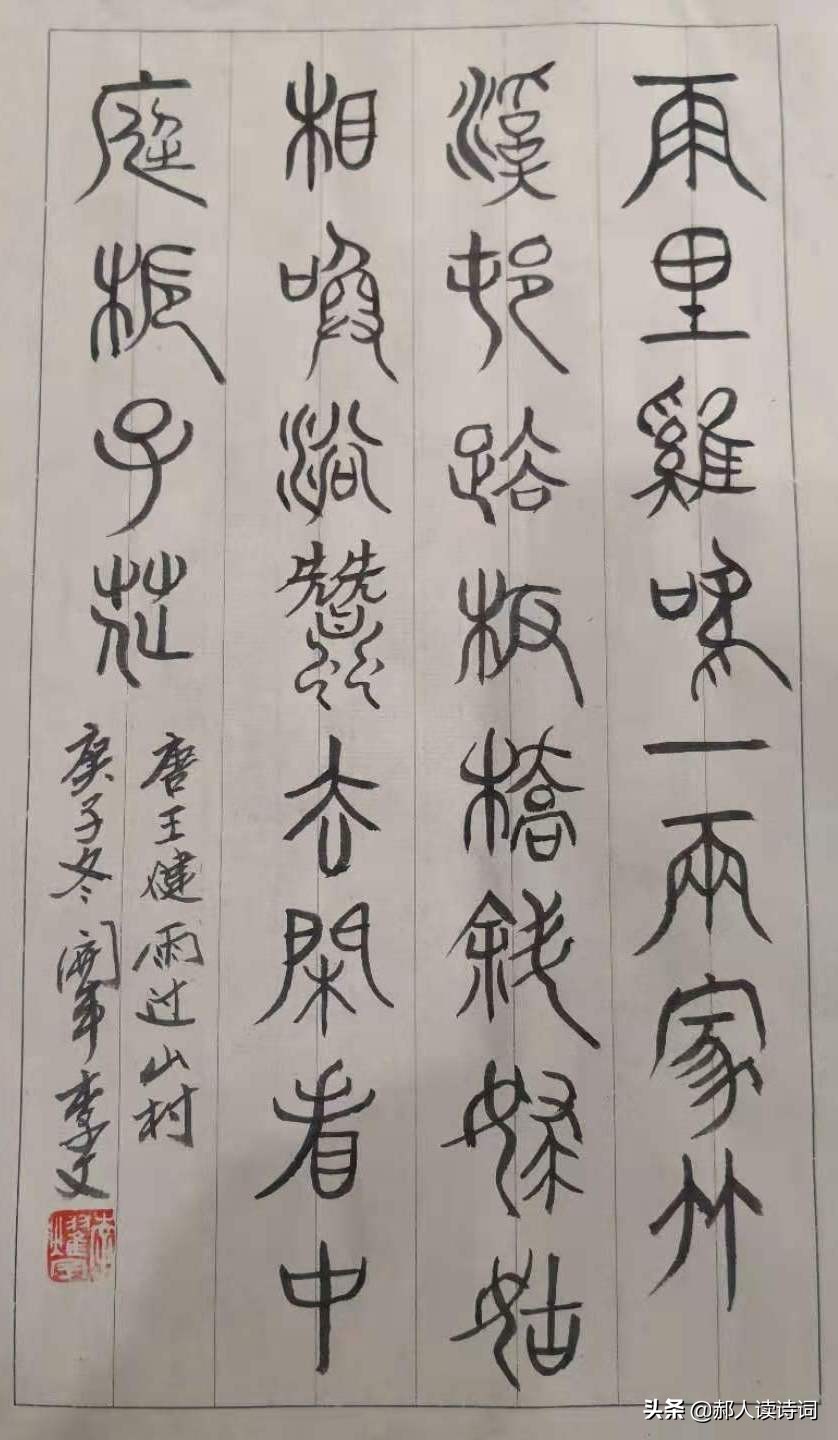 雨里雞鳴一兩家竹
溪邨路板橋斜婦姑
相喚浴蠶去閑看中
庭梔子花
唐王健雨过山村
庚子冬李文
头条 @郝人读诗词